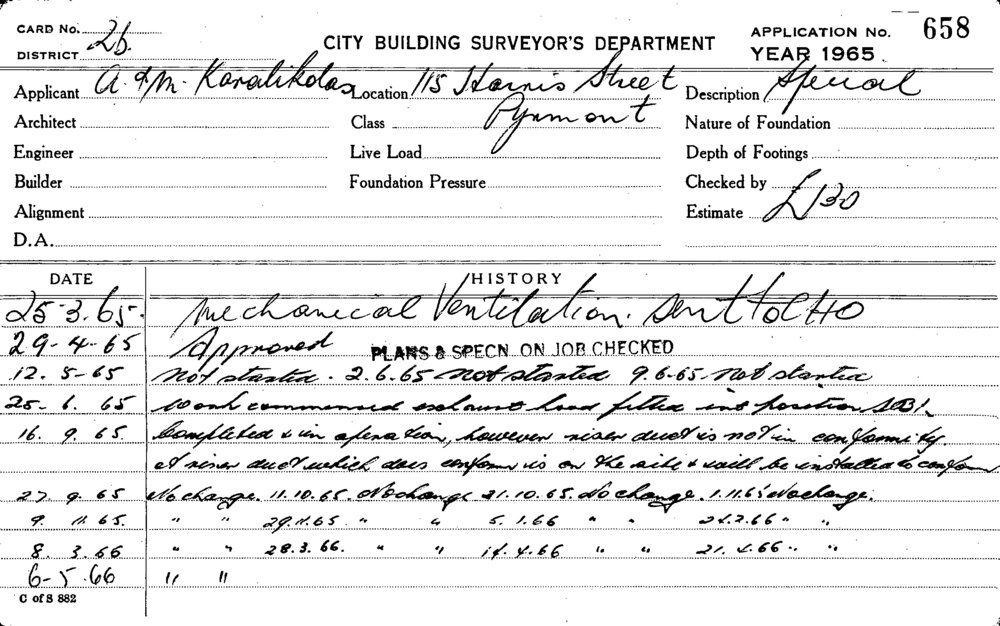 CARD No. 2b. CITY BUILDING SURVEYOR'S DEPARTMENT APPLICATION No. 658
DISTRICT YEAR 1965
Applicant A & M. Karalikolas Location 115 Harris Street Description Special
Architect Class Pyrmont Nature of Foundation
Engineer Live Load Depth of Footings
Builder Foundation Pressure Checked by
Alignment Estimate £130
D.A.
DATE HISTORY
25-3.65. Mechanical Ventilation. Sent to CHO
29-4-65 Approved PLANS & SPECN. ON JOB CHECKED
12. 5-65 Not started. 2.6.65 Not started 9.6-65 Not started
25- 6. 65 Work commenced exhaust hood fitted into position
16. 9. 65. Completed & in operation, however riser duct is not in conformity.
A riser duct which does conform is on the site & will be installed to conform.
27. 9. 65 No change. 11.10.65. No change 21.10.65. No change. 1.11.65 No change.
9. 11. 65. " " 29.11.65. " " 5.1.66 " " 24.2.66 " "
8. 3. 66 " " 28.3.66. " " 14.4.66 " " 21.4.66 " "
6-5.66 " "
C of S 882